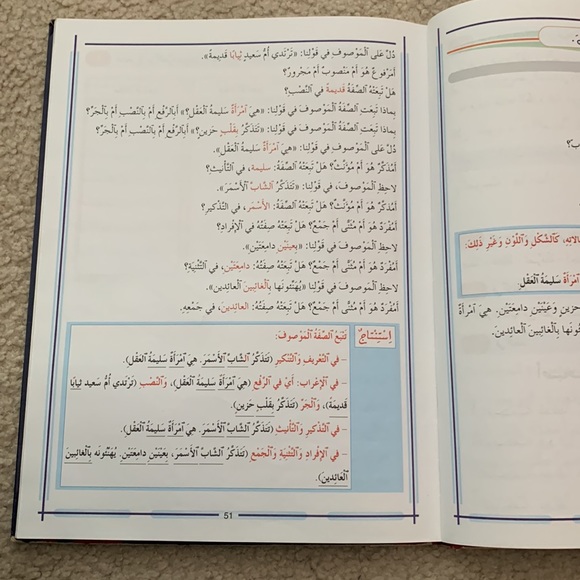 دُلَّ عَلى ٱلْمَوْصوفِ في قَوْلِنا: «تَرْتَدي أُمُّ سَعيدٍ ثِيابًا قَديمَةً».
أَمَرْفوعٌ هُوَ أَمْ مَنْصوبٌ أَمْ مَجْرورٌ؟
هَلْ تَبِعَتْهُ ٱلصِّفَةُ قَديمَةً في ٱلنَّصْبِ؟
بِماذا تَبِعَتِ ٱلصِّفَةُ ٱلْمَوْصوفَ في قَوْلِنا: «هِيَ ٱمْرَأَةٌ سَليمَةُ ٱلْعَقْلِ؟» أَبِٱلرَّفْعِ أَمْ بِٱلنَّصْبِ أَمْ بِٱلْجَرِّ؟
بِماذا تَبِعَتِ ٱلصِّفَةُ ٱلْمَوْصوفَ في قَوْلِنا: «تَتَذَكَّرُ بِقَلْبٍ حَزينٍ؟» أَبِٱلرَّفْعِ أَمْ بِٱلنَّصْبِ أَمْ بِٱلْجَرِّ؟
دُلَّ عَلى ٱلْمَوْصوفِ في قَوْلِنا: «هِيَ ٱمْرَأَةٌ سَليمَةُ ٱلْعَقْلِ».
أَمُذَكَّرٌ هُوَ أَمْ مُؤَنَّثٌ؟ هَلْ تَبِعَتْهُ ٱلصِّفَةُ: سَليمة، في ٱلتَّأْنيثِ؟
لاحِظِ ٱلْمَوْصوفَ، في قَوْلِنا: «تَتَذَكَّرُ ٱلشّابَّ ٱلْأَسْمَرَ».
أَمُذَكَّرٌ هُوَ أَمْ مُؤَنَّثٌ؟ هَلْ تَبِعَتْهُ ٱلصِّفَةُ: ٱلْأَسْمَر، في ٱلتَّذْكيرِ؟
أَمُفْرَدٌ هُوَ أَمْ مُثَنًّى أَمْ جَمْعٌ؟ هَلْ تَبِعَتْهُ صِفَتُهُ في ٱلْإِفْرادِ؟
لاحِظِ ٱلْمَوْصوفَ في قَوْلِنا: «بِعَيْنَيْنِ دامِعَتَيْنِ».
أَمُفْرَدٌ هُوَ أَمْ مُثَنًّى أَمْ جَمْعٌ؟ هَلْ تَبِعَتْهُ صِفَتُهُ: دامِعَتَيْنِ، في ٱلتَّثْنِيَةِ؟
لاحِظِ ٱلْمَوْصوفَ في قَوْلِنا: «يُهَنِّئونَها بِٱلْغائِبينَ ٱلْعائِدينَ».
أَمُفْرَدٌ هُوَ أَمْ مُثَنًّى أَمْ جَمْعٌ؟ هَلْ تَبِعَتْهُ صِفَتُهُ: ٱلعائِدينَ، في جَمْعِهِ.
إِسْتِنْتاجٌ
تَتْبَعُ ٱلصِّفَةُ ٱلْمَوْصوفَ:
– في ٱلتَّعْريفِ وَٱلتَّنْكيرِ (تَتَذَكَّرُ ٱلشّابَّ ٱلْأَسْمَرَ. هِيَ ٱمْرَأَةٌ سَليمَةُ ٱلْعَقْلِ).
– في ٱلْإِعْرابِ: أَيْ في ٱلرَّفْعِ (هِيَ ٱمْرَأَةٌ سَليمَةُ ٱلْعَقْلِ)، وَٱلنَّصْبِ (تَرْتَدي أُمُّ سَعيد ثِيابًا
قَديمَةً)، وَٱلْجَرِّ (تَتَذَكَّرُ بِقَلْبٍ حَزينٍ).
– في ٱلتَّذْكيرِ وَٱلتَّأْنيثِ (تَتَذَكَّرُ ٱلشّابَّ ٱلْأَسْمَرَ. هِيَ ٱمْرَأَةٌ سَليمَةُ ٱلْعَقْلِ).
– في ٱلْإِفْرادِ وَٱلتَّثْنِيَةِ وَٱلْجَمْعِ (تَتَذَكَّرُ ٱلشّابَّ ٱلْأَسْمَرَ، بِعَيْنَيْنِ دامِعَتَيْنِ. يُهَنِّئونَه بِٱلْغائِبينَ
ٱلْعائِدينَ).
51
كَٱلشَّكْلِ وَٱللَّوْنِ وَغَيْرِ ذَلِكَ:
ٱمْرَأَةٌ سَليمَةُ ٱلْعَقْلِ.
حَزينٍ وَعَيْنَيْنِ دامِعَتَيْنِ. هِيَ ٱمْرَأَةٌ
بِٱلْغائِبينَ ٱلْعائِدينَ.